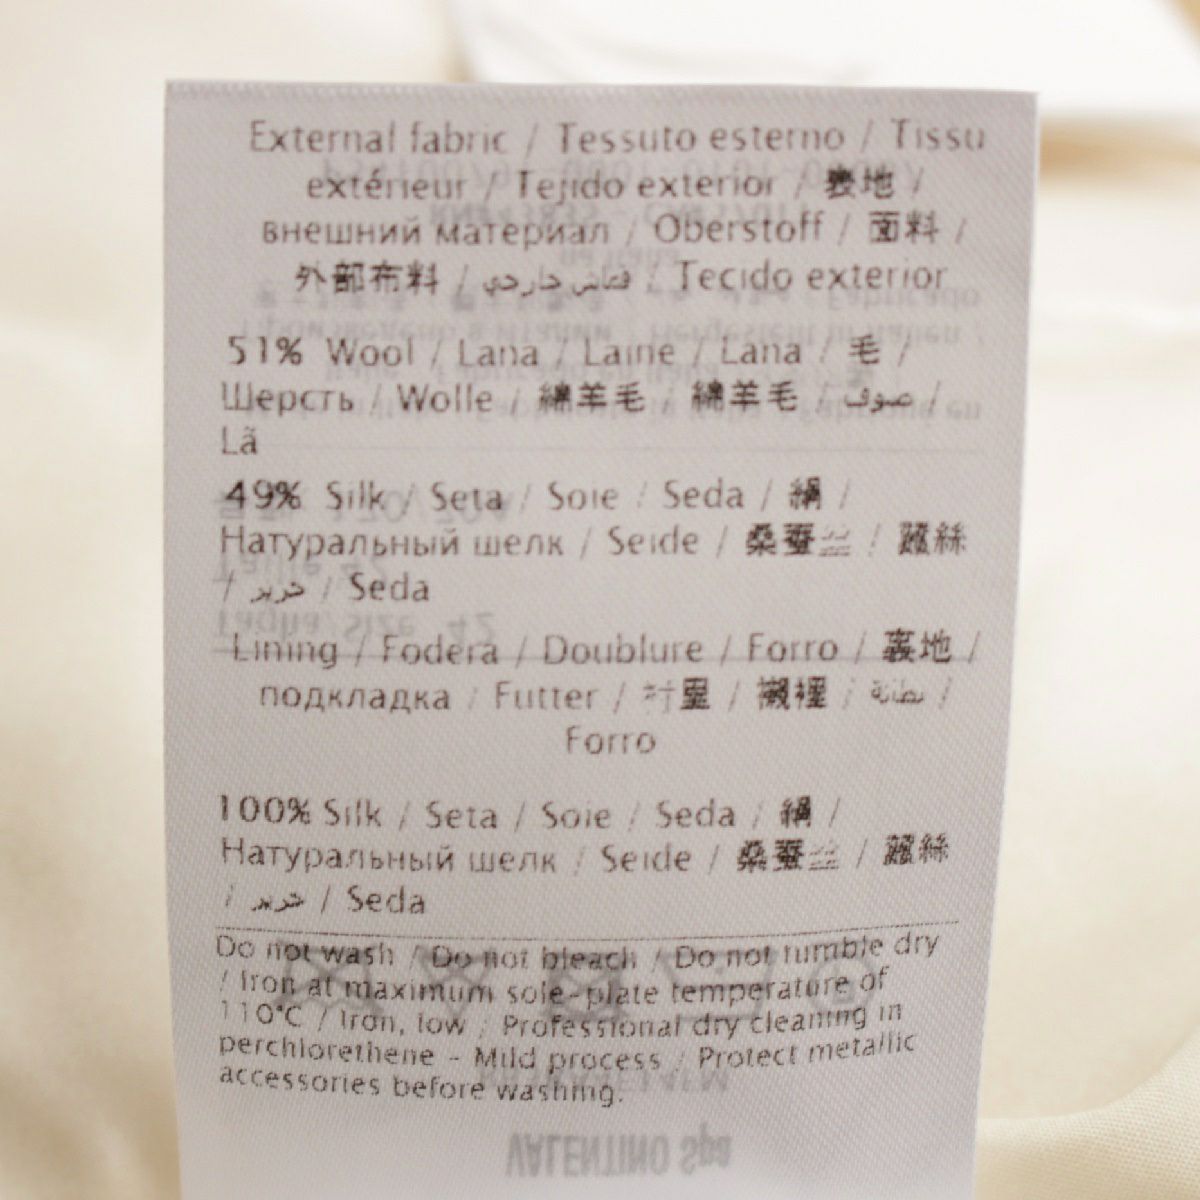 External fabric / Tessuto esterno / Tissu
extérieur / Tejido exterior / 表地 /
внешний материал / Oberstoff / 面料 /
外部布料 / قماش خارجي / Tecido exterior
51% Wool / Lana / Laine / Lana / 毛 /
Шерсть / Wolle / 綿羊毛 / 綿羊毛 / صوف /
Lã
49% Silk / Seta / Soie / Seda / 絹 /
Натуральный шелк / Seide / 桑蚕丝 / 蠶絲
/ حرير / Seda
Lining / Fodera / Doublure / Forro / 裏地 /
подкладка / Futter / 衬里 / 襯裡 / بطانة /
Forro
100% Silk / Seta / Soie / Seda / 絹 /
Натуральный шелк / Seide / 桑蚕丝 / 蠶絲
/ حرير / Seda
Do not wash / Do not bleach / Do not tumble dry
/ Iron at maximum sole-plate temperature of
110°C / Iron, low / Professional dry cleaning in
perchlorethene - Mild process / Protect metallic
accessories before washing.
VALENTINO Spa